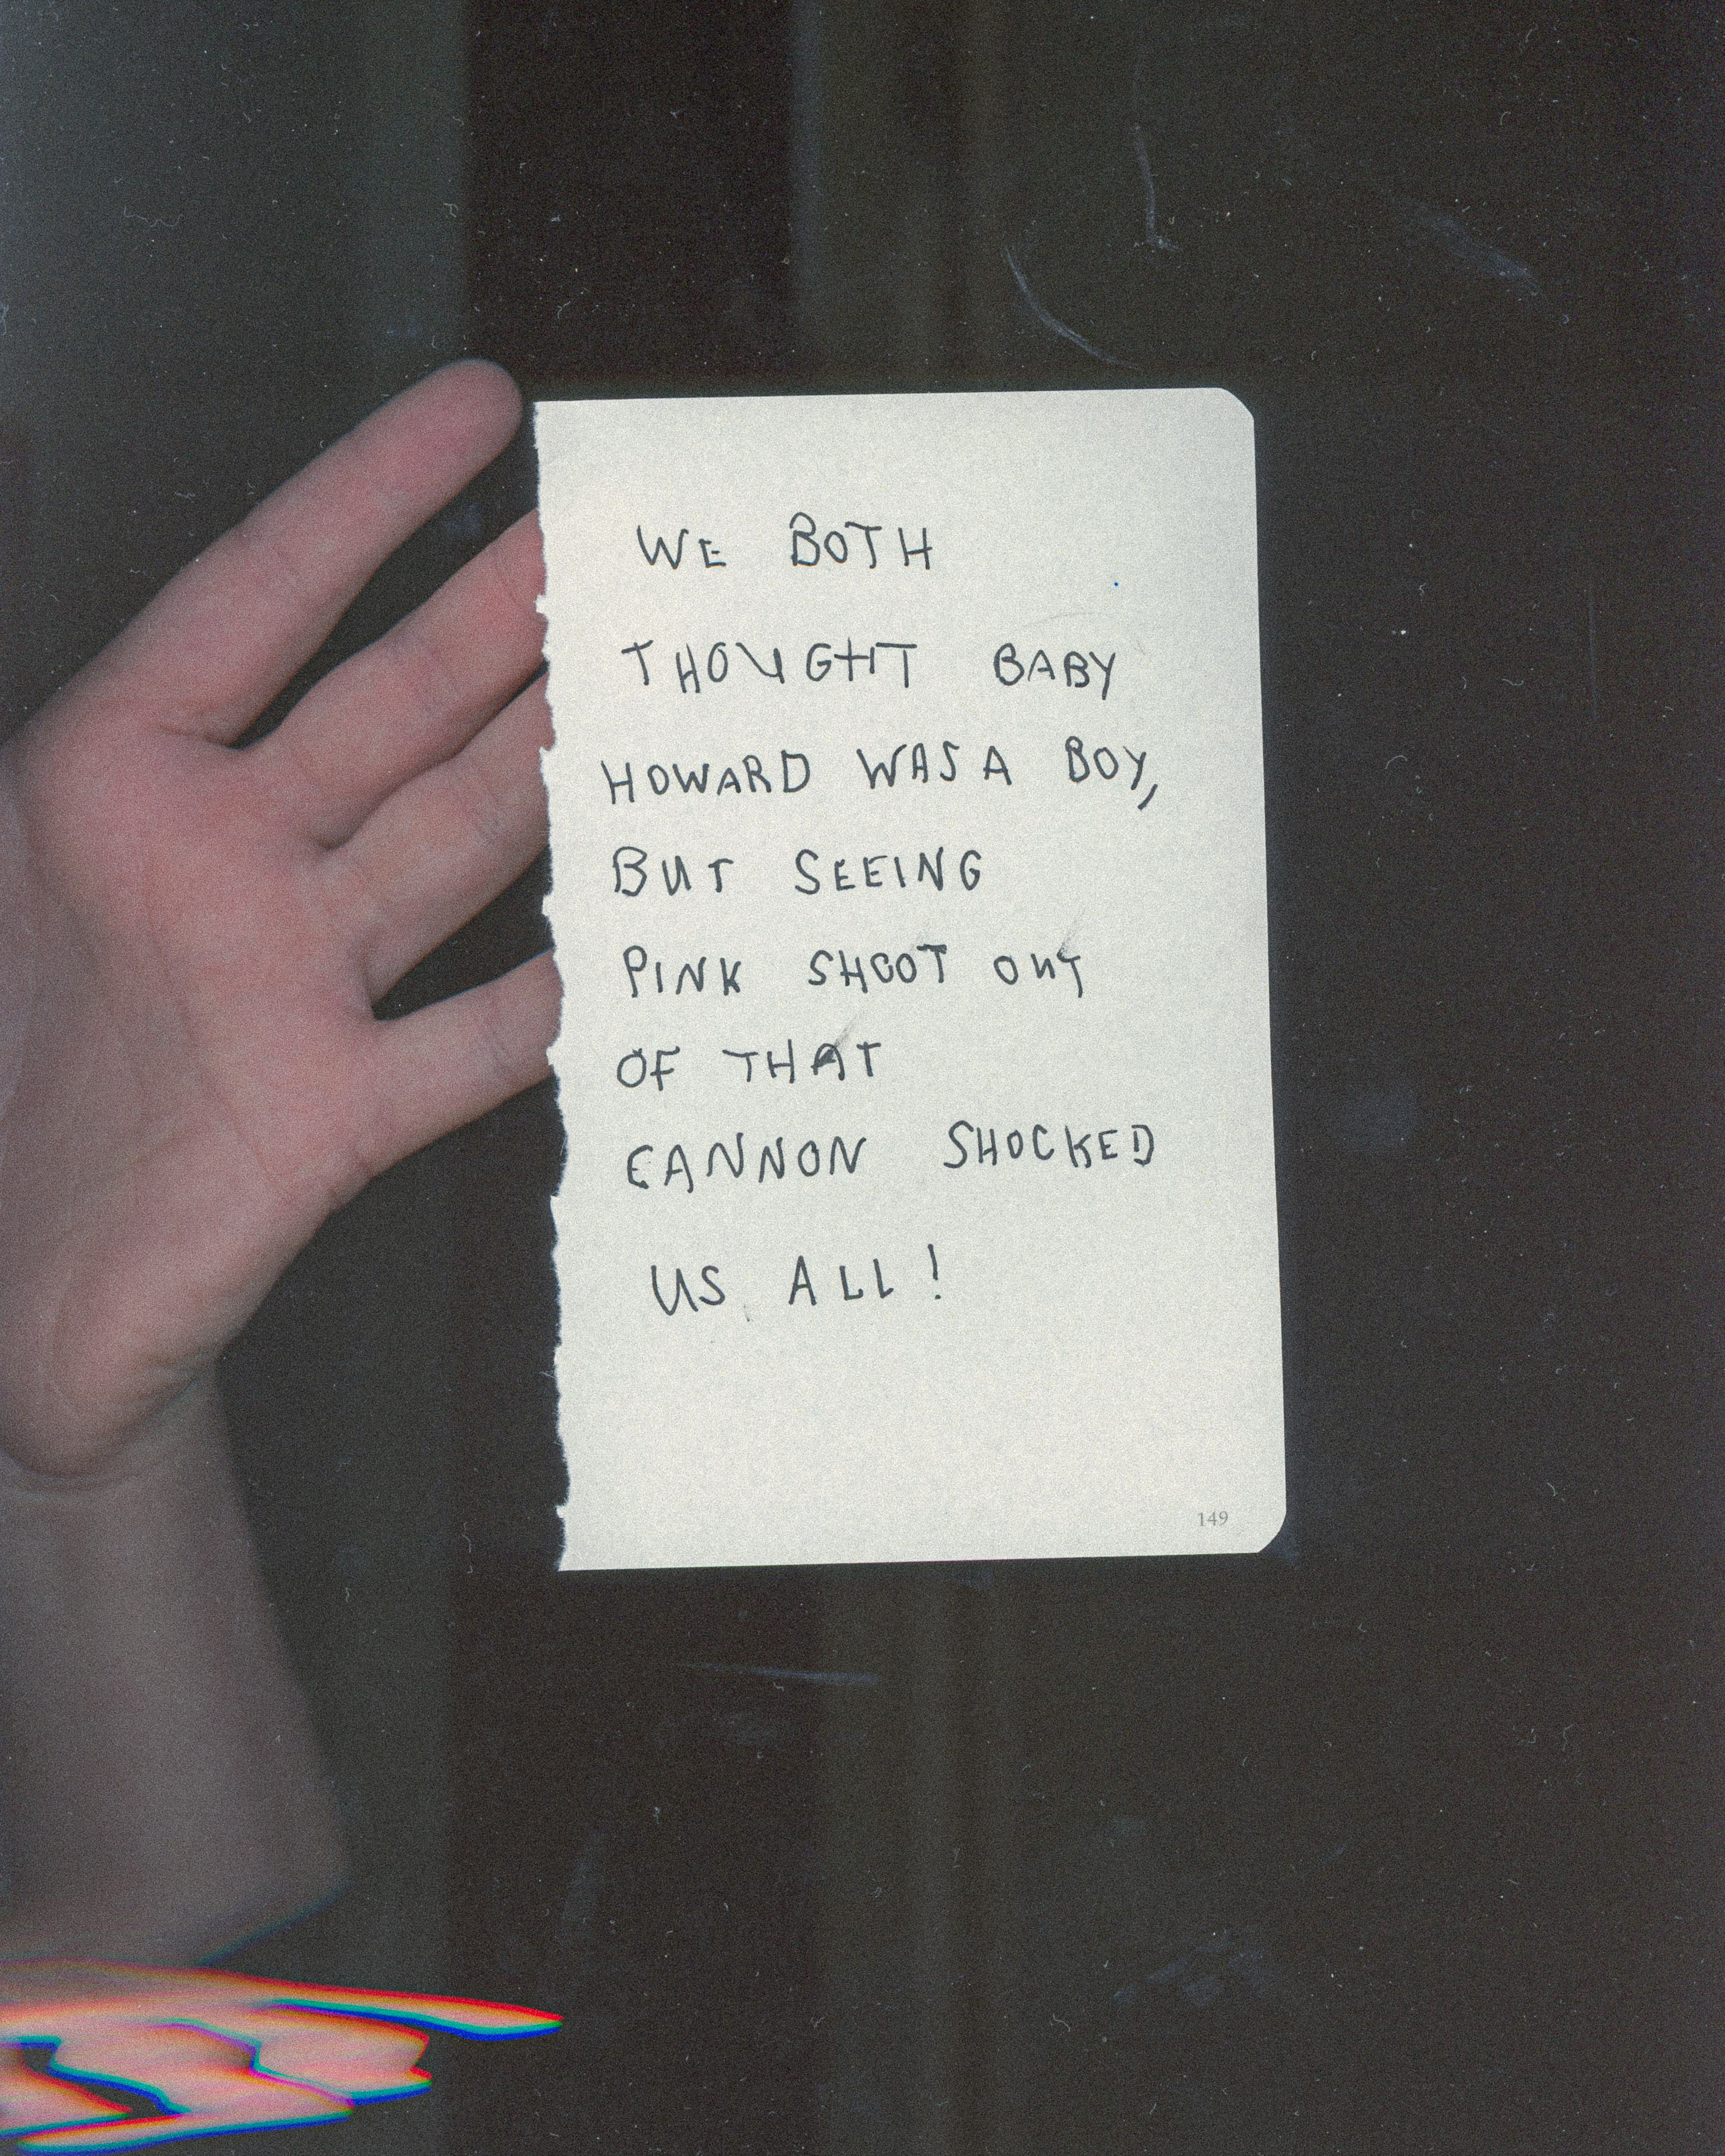 WE BOTH
THOUGHT BABY
HOWARD WAS A BOY,
BUT SEEING
PINK SHOOT OUT
OF THAT
CANNON SHOCKED
US ALL!
149